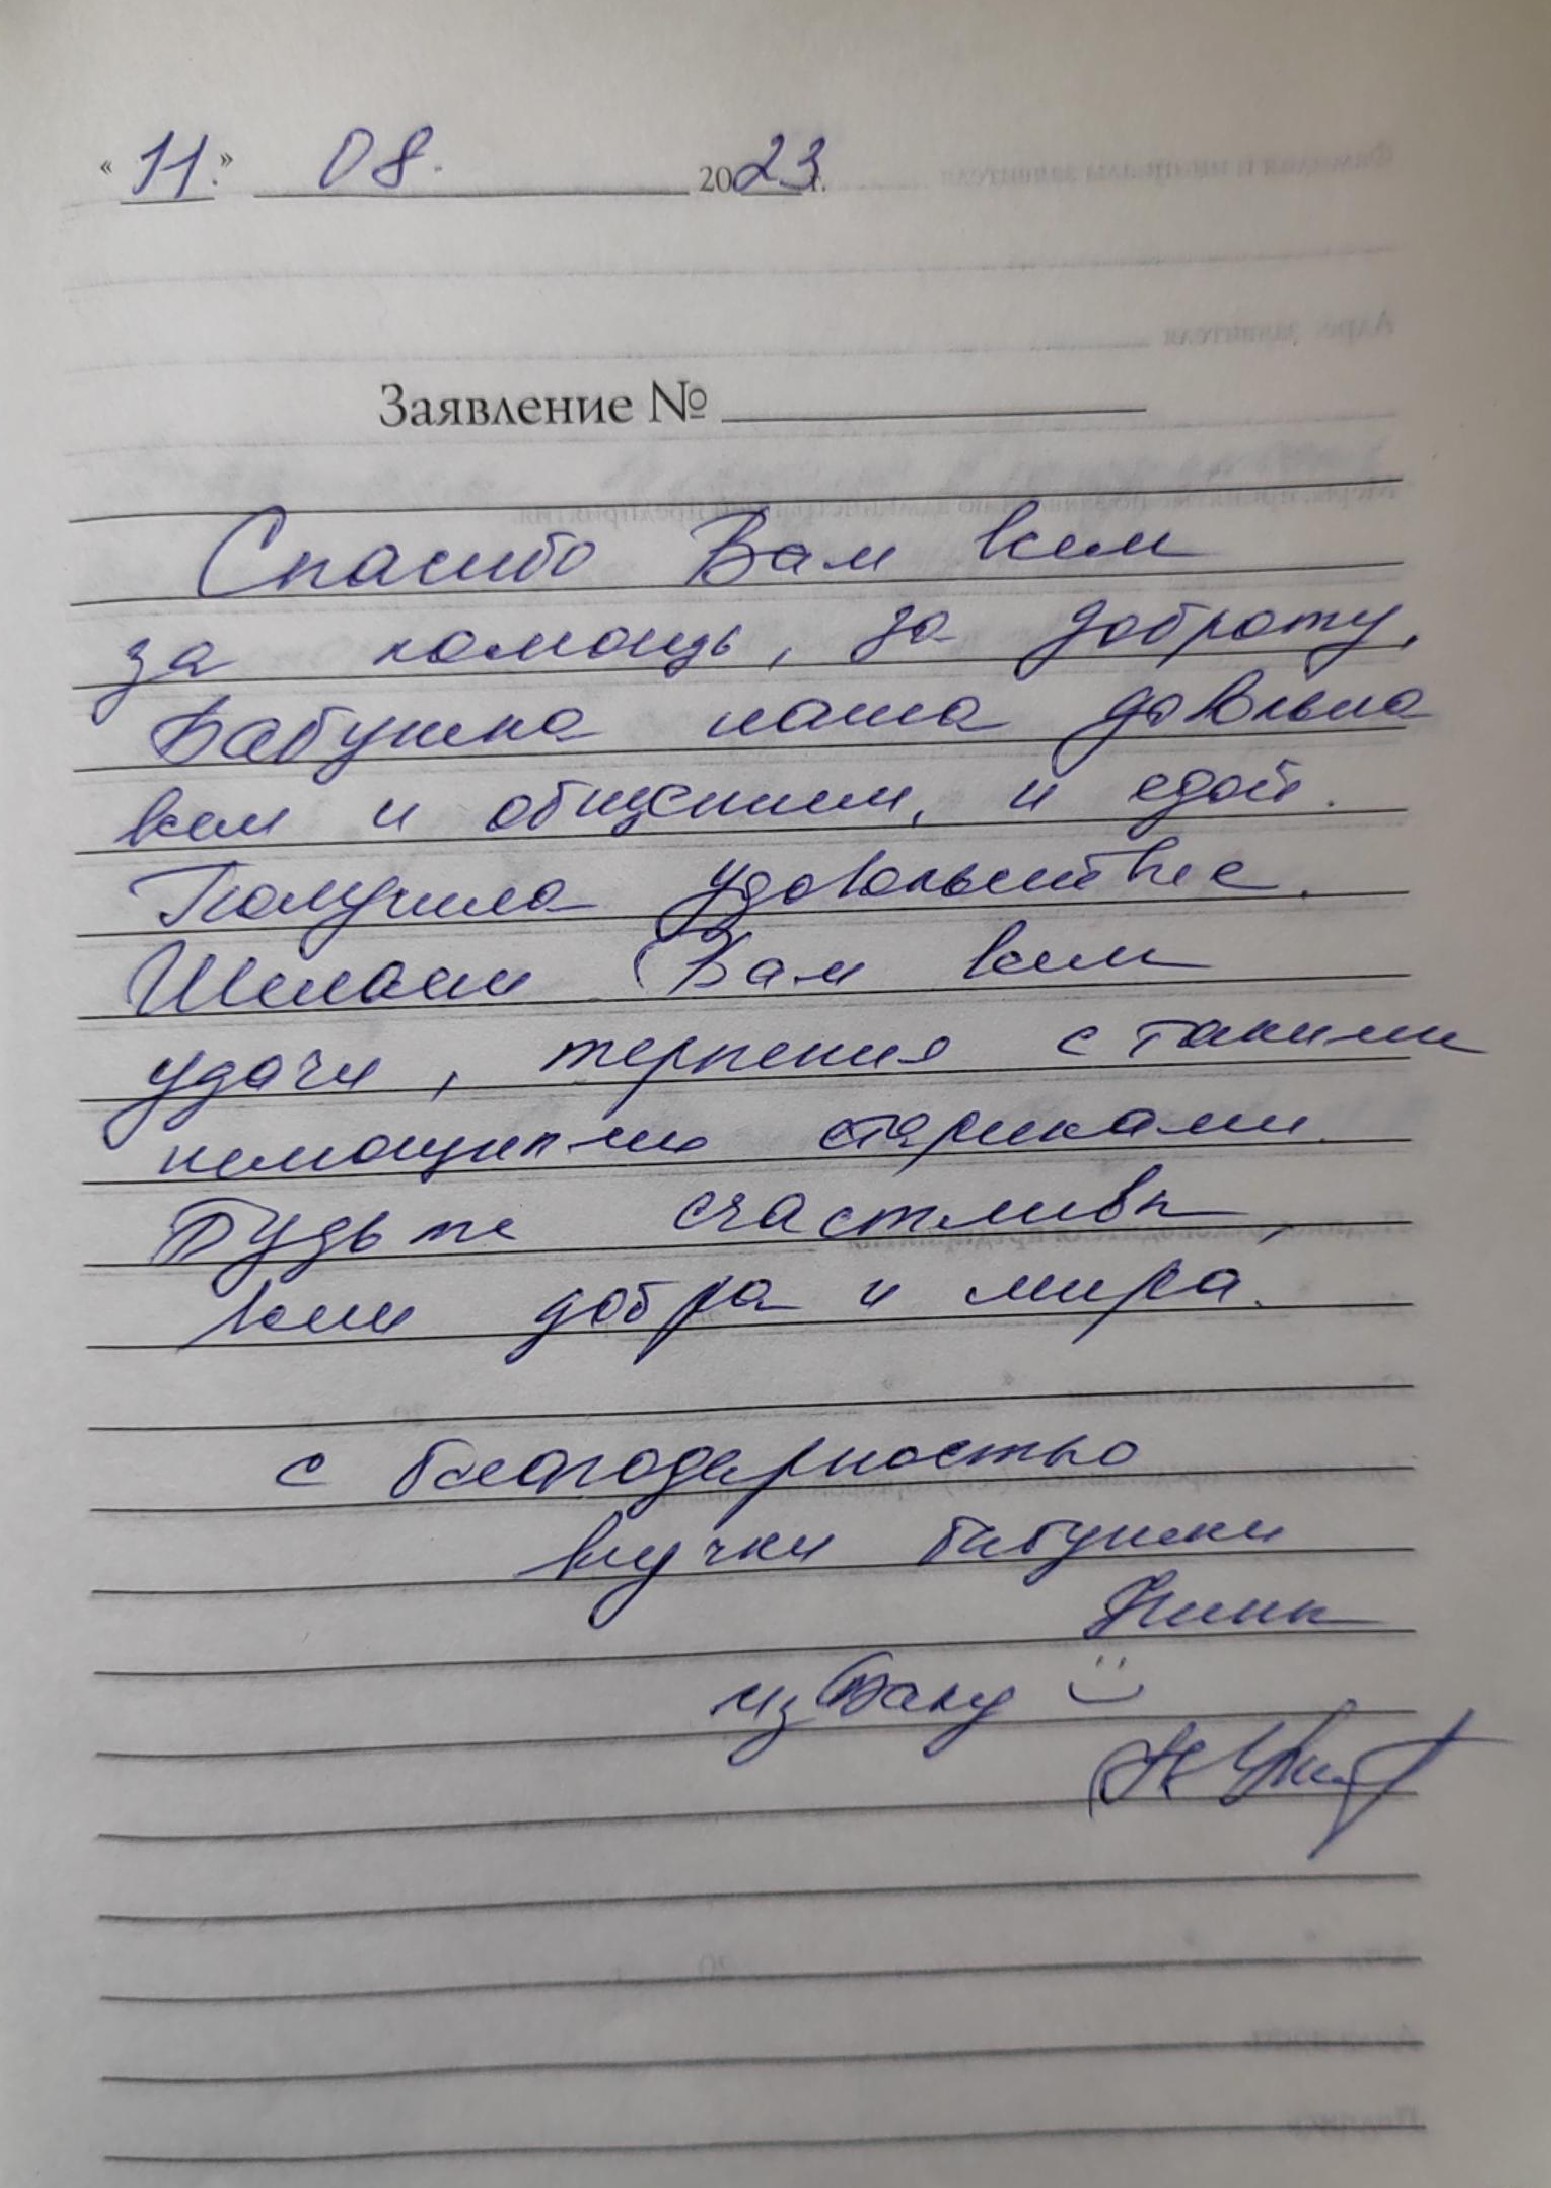 « 11. » 08. 2023 г.
Заявление №
Спасибо Вам всем
за помощь, за доброту.
Бабушка наша довольна
всем и общением, и едой.
Получила удовольствие.
Желаем Вам всем
удачи, терпения с такими
немощными стариками.
Будьте счастливы,
всем добра и мира.
с благодарностью
внучки бабушки
Нины
из Баку